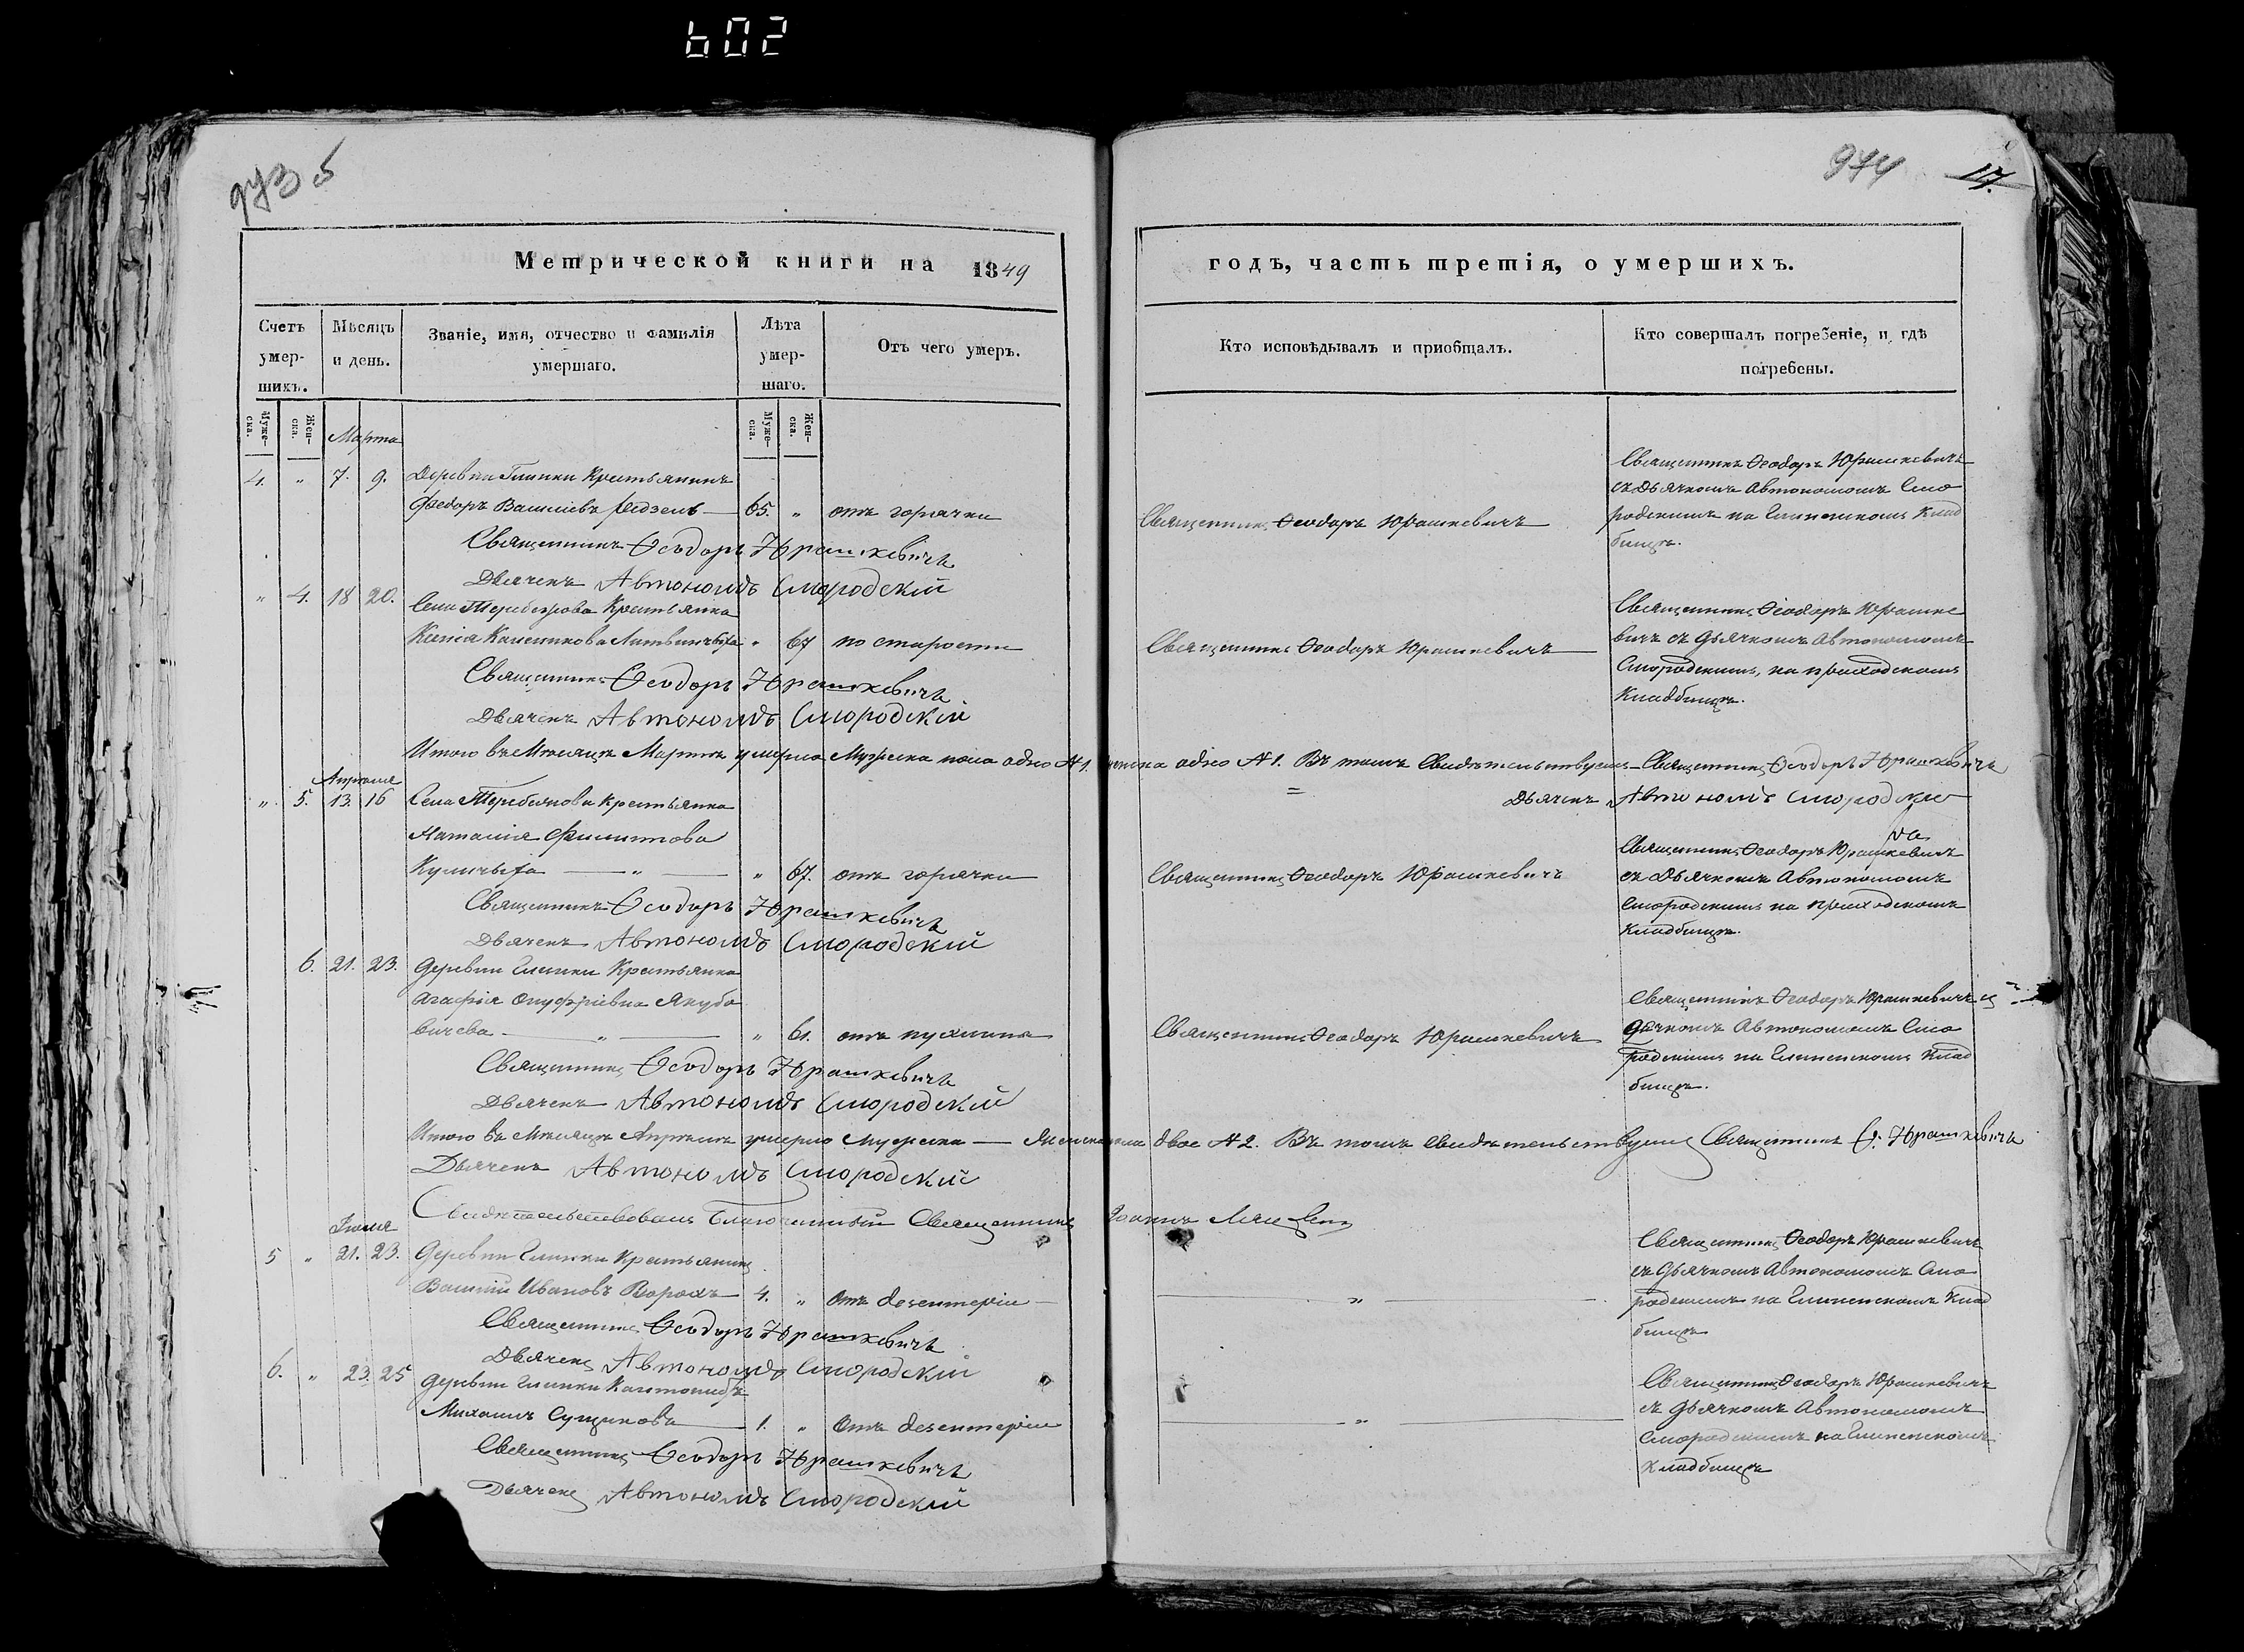 602
973 5
974 17.
Метрической книги на 1849
годъ, часть третія, о умершихъ.
Счетъ умер-шихъ.
Мѣсяцъ и день.
Званіе, имя, отчество и фамилія умершаго.
Лѣта умер-шаго.
Отъ чего умеръ.
Кто исповѣдывалъ и пріобщалъ.
Кто совершалъ погребеніе, и гдѣ погребены.
Муже-ска.
Жен-ска.
Муже-ска.
Жен-ска.
Марта
4. " 7. 9. Деревни Глинки Крестьянинъ
Федоръ Васильевъ 65. " отъ горячки
Священникъ Ѳеодоръ Юрашкевичъ
Священникъ Ѳеодоръ Юрашкевичъ
съ Дьячкомъ Автономомъ Смо
родскимъ на Глинскомъ Клад
бищѣ.
Священникъ Ѳеодоръ Юрашкевичъ
Дьячекъ Автономъ Смородскій
" 4. 18 20. Села Теребежова Крестьянка
Ксенія Каленикова Литвинчиха " 67 по старости
Священникъ Ѳеодоръ Юрашкевичъ
Священникъ Ѳеодоръ Юрашке
вичъ съ дьячкомъ Автономомъ
Смородскимъ, на приходскомъ
Кладбищѣ.
Священникъ Ѳеодоръ Юрашкевичъ
Дьячекъ Автономъ Смородскій
Итого въ Мѣсяцѣ Мартѣ умерло Мужеска пола одно №1. женска одно №1. Въ томъ Свидѣтельствуемъ Священникъ Ѳеодоръ Юрашкевичъ
Дьячекъ Автономъ Смородскій
Апрѣля
" 5. 13. 16 Села Теребежова Крестьянка
Наталія Филиппова
Куличыха " " 67. отъ горячки
Священникъ Ѳеодоръ Юрашкевичъ
Священникъ Ѳеодоръ Юрашкевичъ
съ Дьячкомъ Автономомъ
Смородскимъ на приходскомъ
Кладбищѣ.
Священникъ Ѳеодоръ Юрашкевичъ
Дьячекъ Автономъ Смородскій
6. 21. 23. Деревни Глинки Крестьянка
Агафія Онуфріевна Якубо
вичева " " 61. отъ пухлины
Священникъ Ѳеодоръ Юрашкевичъ
Священникъ Ѳеодоръ Юрашкевичъ съ
дьячкомъ Автономомъ Смо
родскимъ на Глинскомъ Клад
бищѣ.
Священникъ Ѳеодоръ Юрашкевичъ
Дьячекъ Автономъ Смородскій
Итого въ Мѣсяцѣ Апрѣлѣ умерло Мужеска — Женска пола двое №2. Въ томъ Свидѣтельствуемъ Священникъ Ѳ. Юрашкевичъ
Дьячекъ Автономъ Смородскій
Свидѣтельствовалъ Благочинный Священникъ Іоаннъ
5 " 21. 23. Деревни Глинки Крестьянинъ
Василій Ивановъ 4. " Отъ дезентеріи
"
Священникъ Ѳеодоръ Юрашкевичъ
съ дьячкомъ Автономомъ Смо
родскимъ на Глинскомъ Клад
бищѣ
Священникъ Ѳеодоръ Юрашкевичъ
Дьячекъ Автономъ Смородскій
6. " 23. 25 Деревни Глинки
Михаилъ 1. " Отъ дезентеріи
"
Священникъ Ѳеодоръ Юрашкевичъ
съ дьячкомъ Автономомъ
Смородскимъ на Глинскомъ
Кладбищѣ
Священникъ Ѳеодоръ Юрашкевичъ
Дьячекъ Автономъ Смородскій